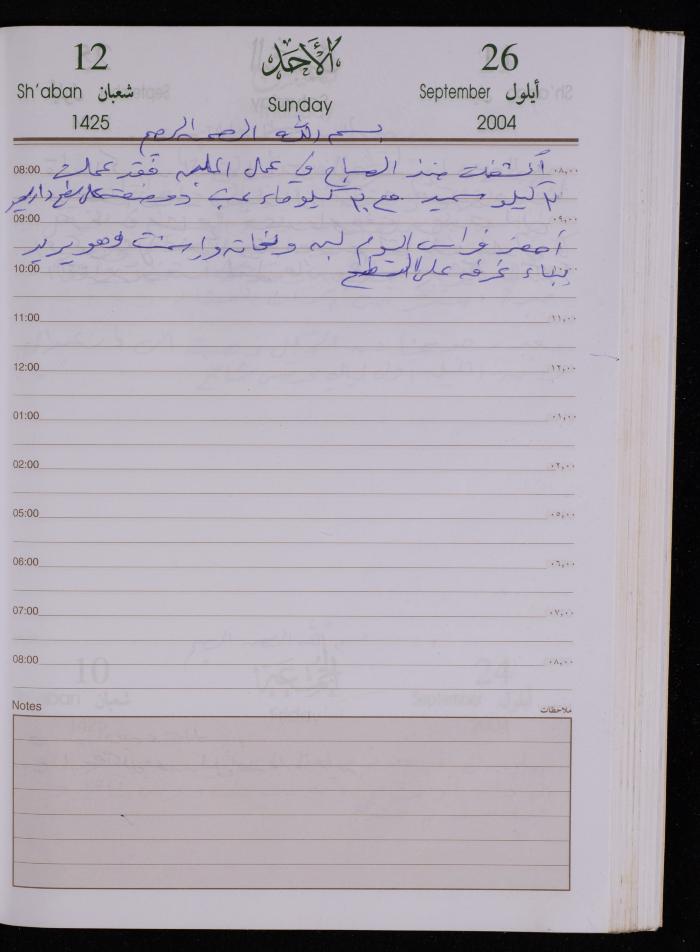 12 الأَحَد 26
Sh'aban شعبان Sunday September أيلول
1425 2004
بسم الله الرحمن الرحيم
08:00 انشغلت منذ الصباح في عمل فقد عملت ٠٨,٠٠
كيلو سميد مع ٣ كيلو ماء عنب ووضعته على سطح دار
09:00 ٠٩,٠٠
أحضر فراس اليوم لبن ونحاته واسمنت وهو يريد
10:00 بناء غرفه على السطح ١٠,٠٠
11:00 ١١,٠٠
12:00 ١٢,٠٠
01:00 ٠١,٠٠
02:00 ٠٢,٠٠
05:00 ٠٥,٠٠
06:00 ٠٦,٠٠
07:00 ٠٧,٠٠
08:00 ٠٨,٠٠
Notes ملاحظات